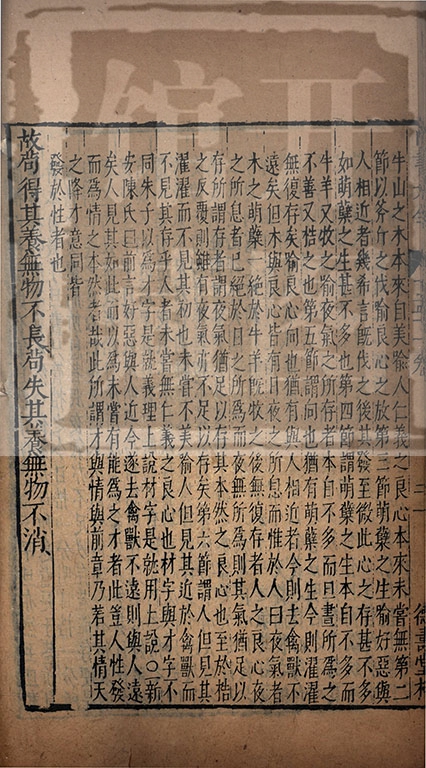 牛山之木本來自美喻人仁義之良心本來未嘗無第二
節以斧斤之伐喻良心之放第三節萌蘖之生喻好惡與
人相近者幾希言既伐之後其發至微此心之存甚不多
如萌蘖之生甚不多也第四節謂萌蘖之生本自不多而
牛羊又牧之喻夜氣之所存者本自不多而旦晝所爲之
不善又梏之也第五節謂向也猶有萌蘖之生今則濯濯
無復存矣喻良心向也猶有與人相近者今則去禽獸不
遠矣但木與良心皆有日夜之所息而惟於人曰夜氣者
木之萌蘖一絶於牛羊既牧之後無復存者人之良心夜
之所息者巳絶於日之所爲而夜無所爲則其氣猶足以
存所謂存者謂夜氣猶足以存其本然之良心也至於梏
之反覆則雖有夜氣亦不足以存矣第六節謂人但見其
濯濯而不見其初也未嘗不美喻人但見其近於禽獸而
不見其存乎人者未嘗無仁義之良心也材字與才字不
同朱子以爲才字是就義理上說材字是就用上說〇新
安陳氏曰前言好惡與人近今遂去禽獸不遠則與人遠
矣人見其如此而以爲未嘗有能爲之才者此豈人性發
而爲情之本然者哉此所謂才與情與前章乃若其情天
之降才意同皆
發於性者也
故苟得其養無物不長苟失其養無物不消
德書堂